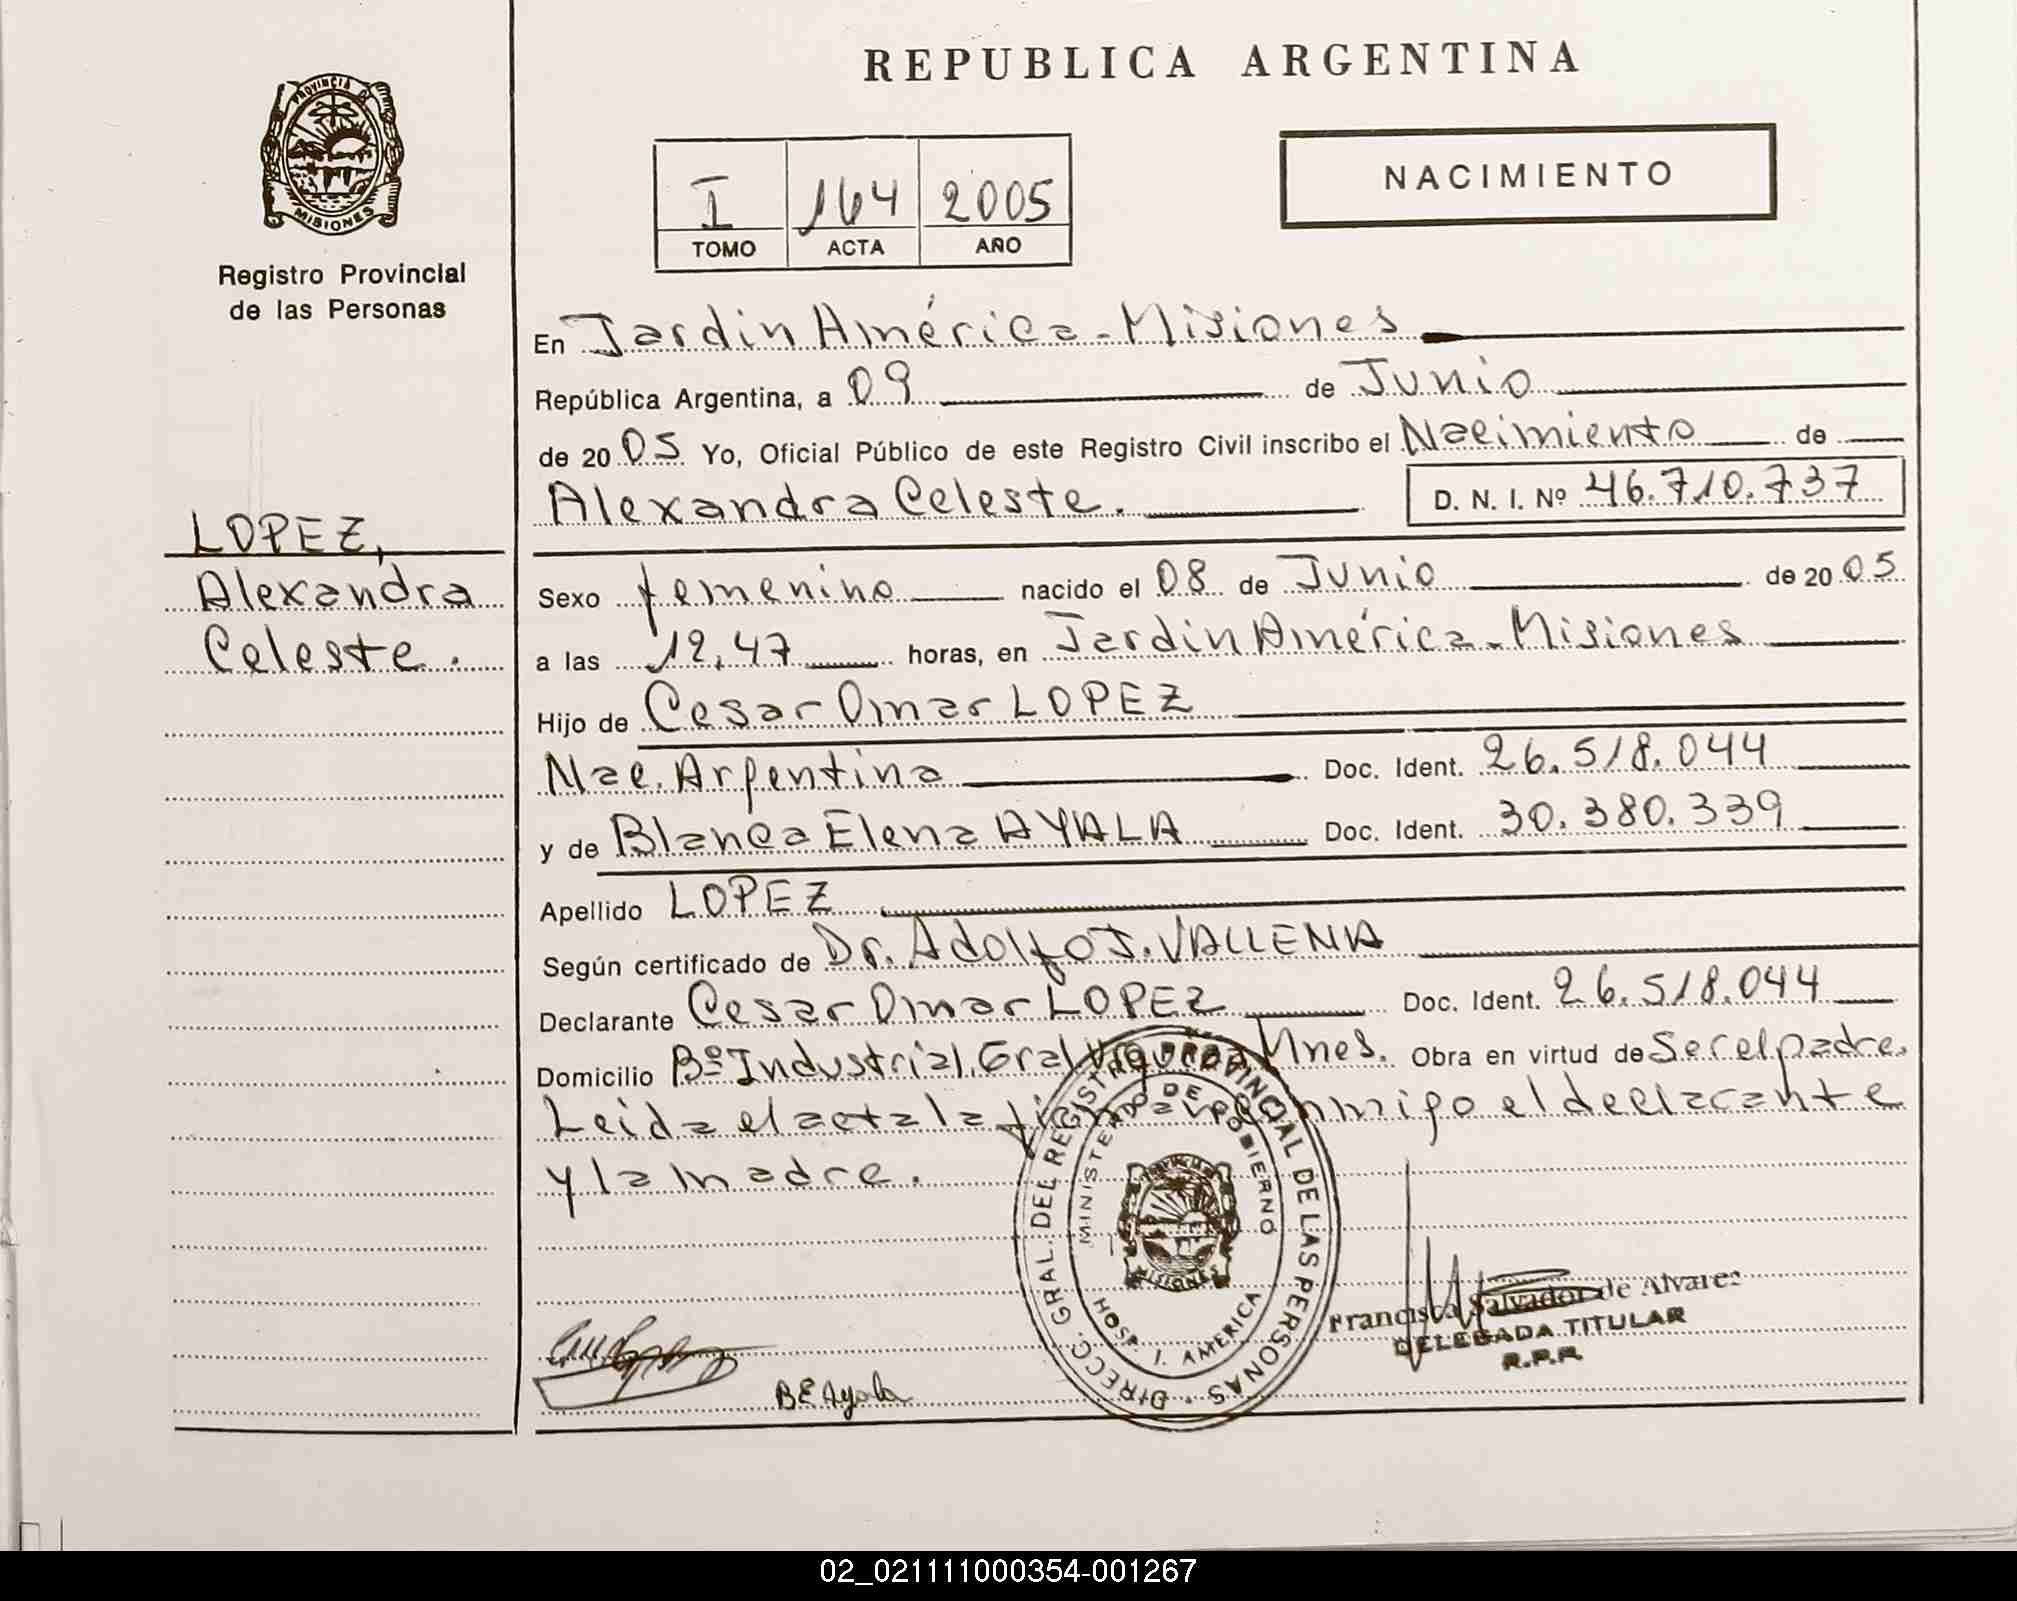 REPUBLICA ARGENTINA
PROVINCIA DE
MISIONES
Registro Provincial
de las Personas
I 164 2005
TOMO ACTA AÑO
NACIMIENTO
LOPEZ,
Alexandra
Celeste.
En Jardin América - Misiones
República Argentina, a 09 de Junio
de 2005 Yo, Oficial Público de este Registro Civil inscribo el Nacimiento de
Alexandra Celeste. D. N. I. Nº 46.710.737
Sexo femenino nacido el 08 de Junio de 2005
a las 12,47 horas, en Jardin América - Misiones
Hijo de Cesar Omar LOPEZ
Nac. Argentina Doc. Ident. 26.518.044
y de Blanca Elena AYALA Doc. Ident. 30.380.339
Apellido LOPEZ
Según certificado de Dr. Adolfo J. VALLENA
Declarante Cesar Omar LOPEZ Doc. Ident. 26.518.044
Domicilio Bº Industrial. Gral Urquiza Mnes. Obra en virtud de Ser el padre.
Leida el acta la firman conmigo el declarante
y la madre.
DIRECC. GRAL. DEL REGISTRO PROVINCIAL DE LAS PERSONAS
MINISTERIO DE GOBIERNO
MISIONES
HOSP. J. AMERICA
Francisca Salvador de Alvarez
DELEGADA TITULAR
R.P.P.
BEAyala
02_021111000354-001267